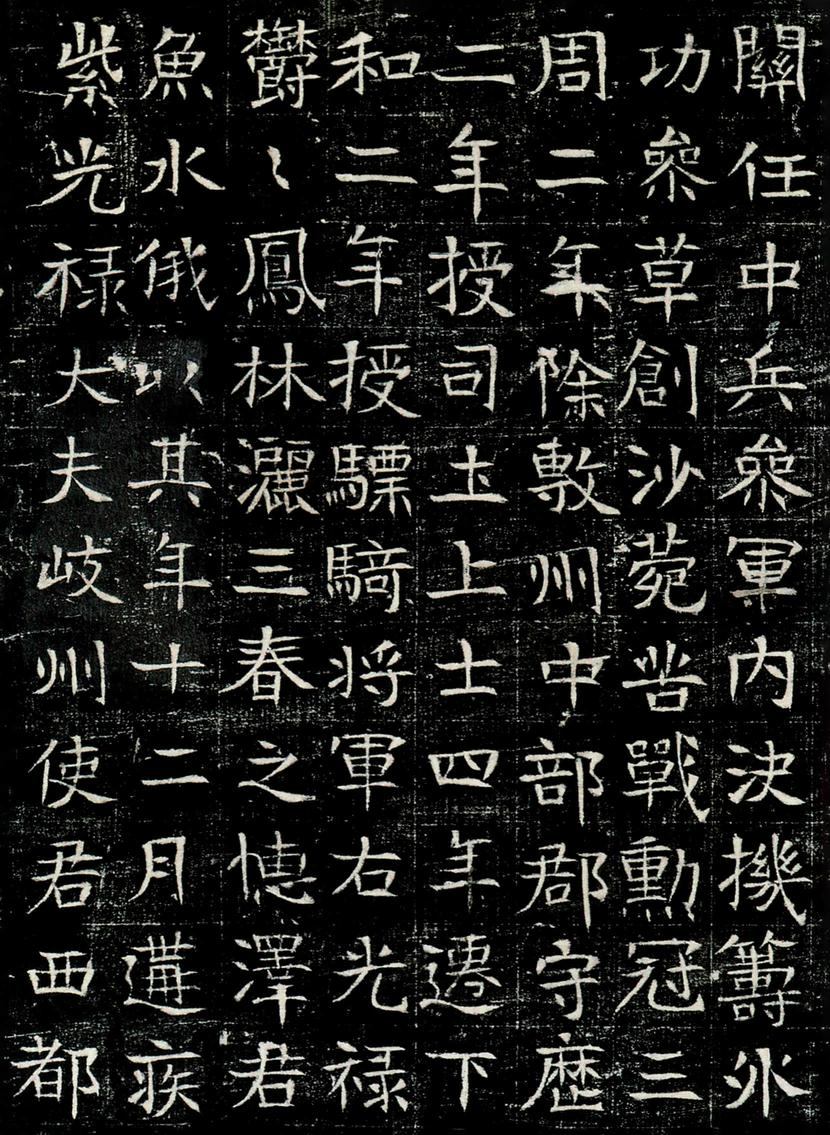 關任中兵叅軍内決機籌外
功叅草創沙菀苦戰勳冠三
周二年除敷州中部郡守歷
二年授司土上士四年遷下
和二年授驃騎将軍右光禄
欝〻鳳林灑三春之憓澤君
魚水俄以其年十二月遘疾
紫光禄大夫岐州使君西都